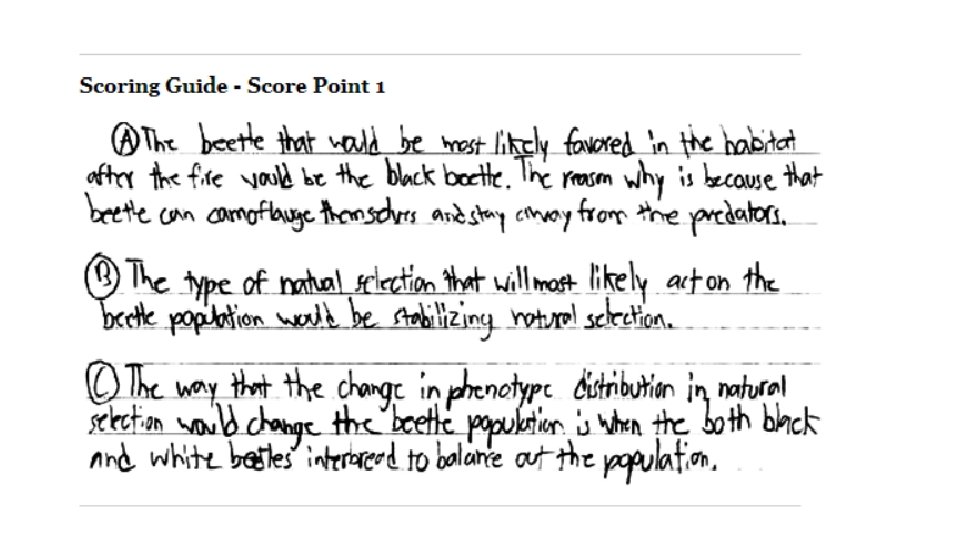 Scoring Guide - Score Point 1
Ⓐ The beetle that would be most likely favored in the habitat
after the fire would be the black beetle. The reason why is because that
beetle can camoflauge themselves and stay away from the predators.
Ⓑ The type of natual selection that will most likely act on the
beetle population would be stabilizing natural selection.
Ⓒ The way that the change in phenotype distribution in natural
selection would change the beetle population is when the both black
and white beetles interbreed to balance out the population.